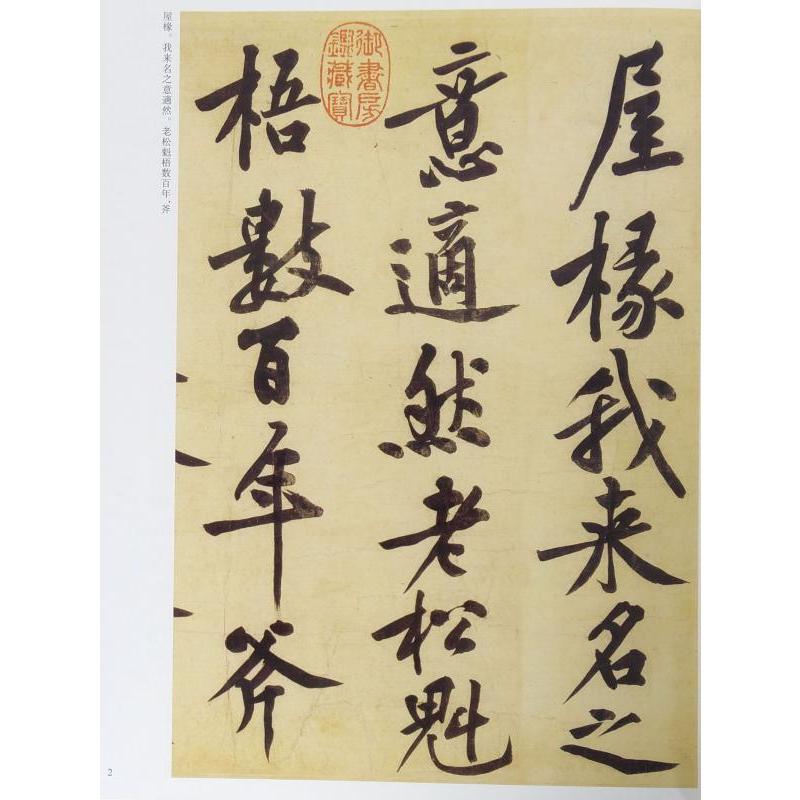 屋椽我来名之
意適然老松魁
梧數百年斧
御書房
鑑藏寶
屋椽。我来名之意適然。老松魁梧数百年，斧
2